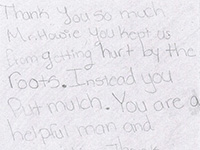 Thank you so much
Mr. Howie you kept us
from getting hurt by the
roots. Instead you
put mulch. You are a
helpful man and